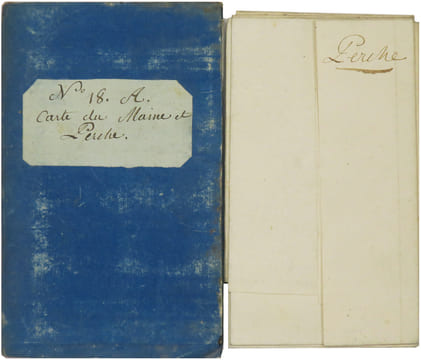 Nº 18. A.
Carte du Maine et
Perche.
Perche